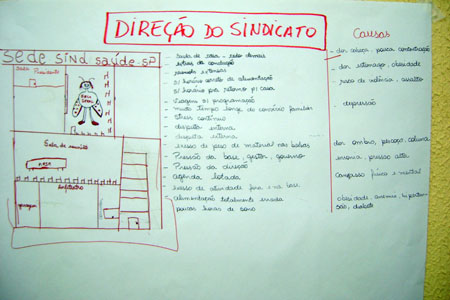 DIREÇÃO DO SINDICATO
Causas
Sede Sind saúde-SP
Sala Presidente
Sala de reunião
MESA
garagem
stress de condução
jornada extensa
s/ horário correto de alimentação
s/ horário pra retorno p/ casa
viagens s/ programação
muito tempo longe do convívio familiar
stress contínuo
disputa interna
disputa externa
excesso de peso de material nas bolsas
Pressão da base, gestor, governo
Pressão da direção
agenda lotada
excesso de atividade fora e na base
alimentação totalmente errada
poucas horas de sono
dor cabeça, pouca concentração
dor estomago, obesidade
risco de violência, assalto
depressão
dor ombro, pescoço, coluna
insonia, pressão alta
cansasso fisico e mental
obesidade,